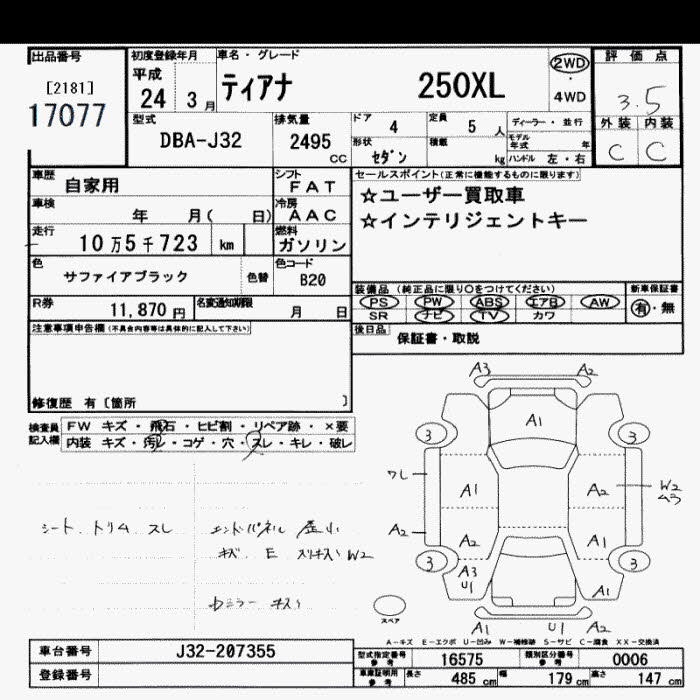 出品番号 初度登録年月 車名・グレード 評価点
[2181] 平成 ティアナ 250XL 2WD・4WD 3.5
17077 24 3月
型式 排気量 ドア 4 定員 5人 ディーラー・並行 外装 内装
DBA-J32 2495cc 形状 セダン 積載 kg モデル年式 年 C C
ハンドル 左・右
車歴 自家用 シフト FAT セールスポイント(正常に機能するものに限ります)
車検 年 月( 日) 冷房 AAC ☆ユーザー買取車
走行 10万5千723 km 燃料 ガソリン ☆インテリジェントキー
色 サファイアブラック 色替 色コード B20
装備品 (純正品に限り○をつけてください) 新車保証書
R券 11,870円 名変通知期限 月 日 PS PW ABS エアB AW 有・無
SR ナビ TV カワ
注意事項申告欄(不具合内容等は具体的に記入して下さい) 後日品 保証書・取説
修復歴 有〔箇所 〕
検査員記入欄 FW キズ・飛石・ヒビ割・リペア跡・×要
内装 キズ・汚レ・コゲ・穴・スレ・キレ・破レ
A3 A2
A1
3 3
ワレ A1 A2 W2
シート、トリム スレ エンドパネル
キズ E W2
A2 A2 A1
3 A3 U1 3
A1
スペア
A1 U1 A2
A-キズ E-エクボ U-凹み W-補修跡 S-サビ C-腐食 XX-交換済
車台番号 J32-207355 型式指定番号 参考 16575 類別区分番号 参考 0006
登録番号 車庫証明用 参考 長さ 485cm 幅 179cm 高さ 147cm